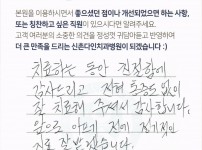 본원을 이용하시면서 좋으셨던 점이나 개선되었으면 하는 사항,
또는 칭찬하고 싶은 직원이 있으시다면 알려주세요.
고객 여러분의 소중한 의견을 정성껏 귀담아듣고 반영하며
더 큰 만족을 드리는 신촌다인치과병원이 되겠습니다 :)
치료하는 동안 친절함에
감사드리고 전혀 통증도 없이
잘 치료해 주셔서 감사합니다.
앞으로 아프게 전에 정기적인
치료 잘 받겠습니다.